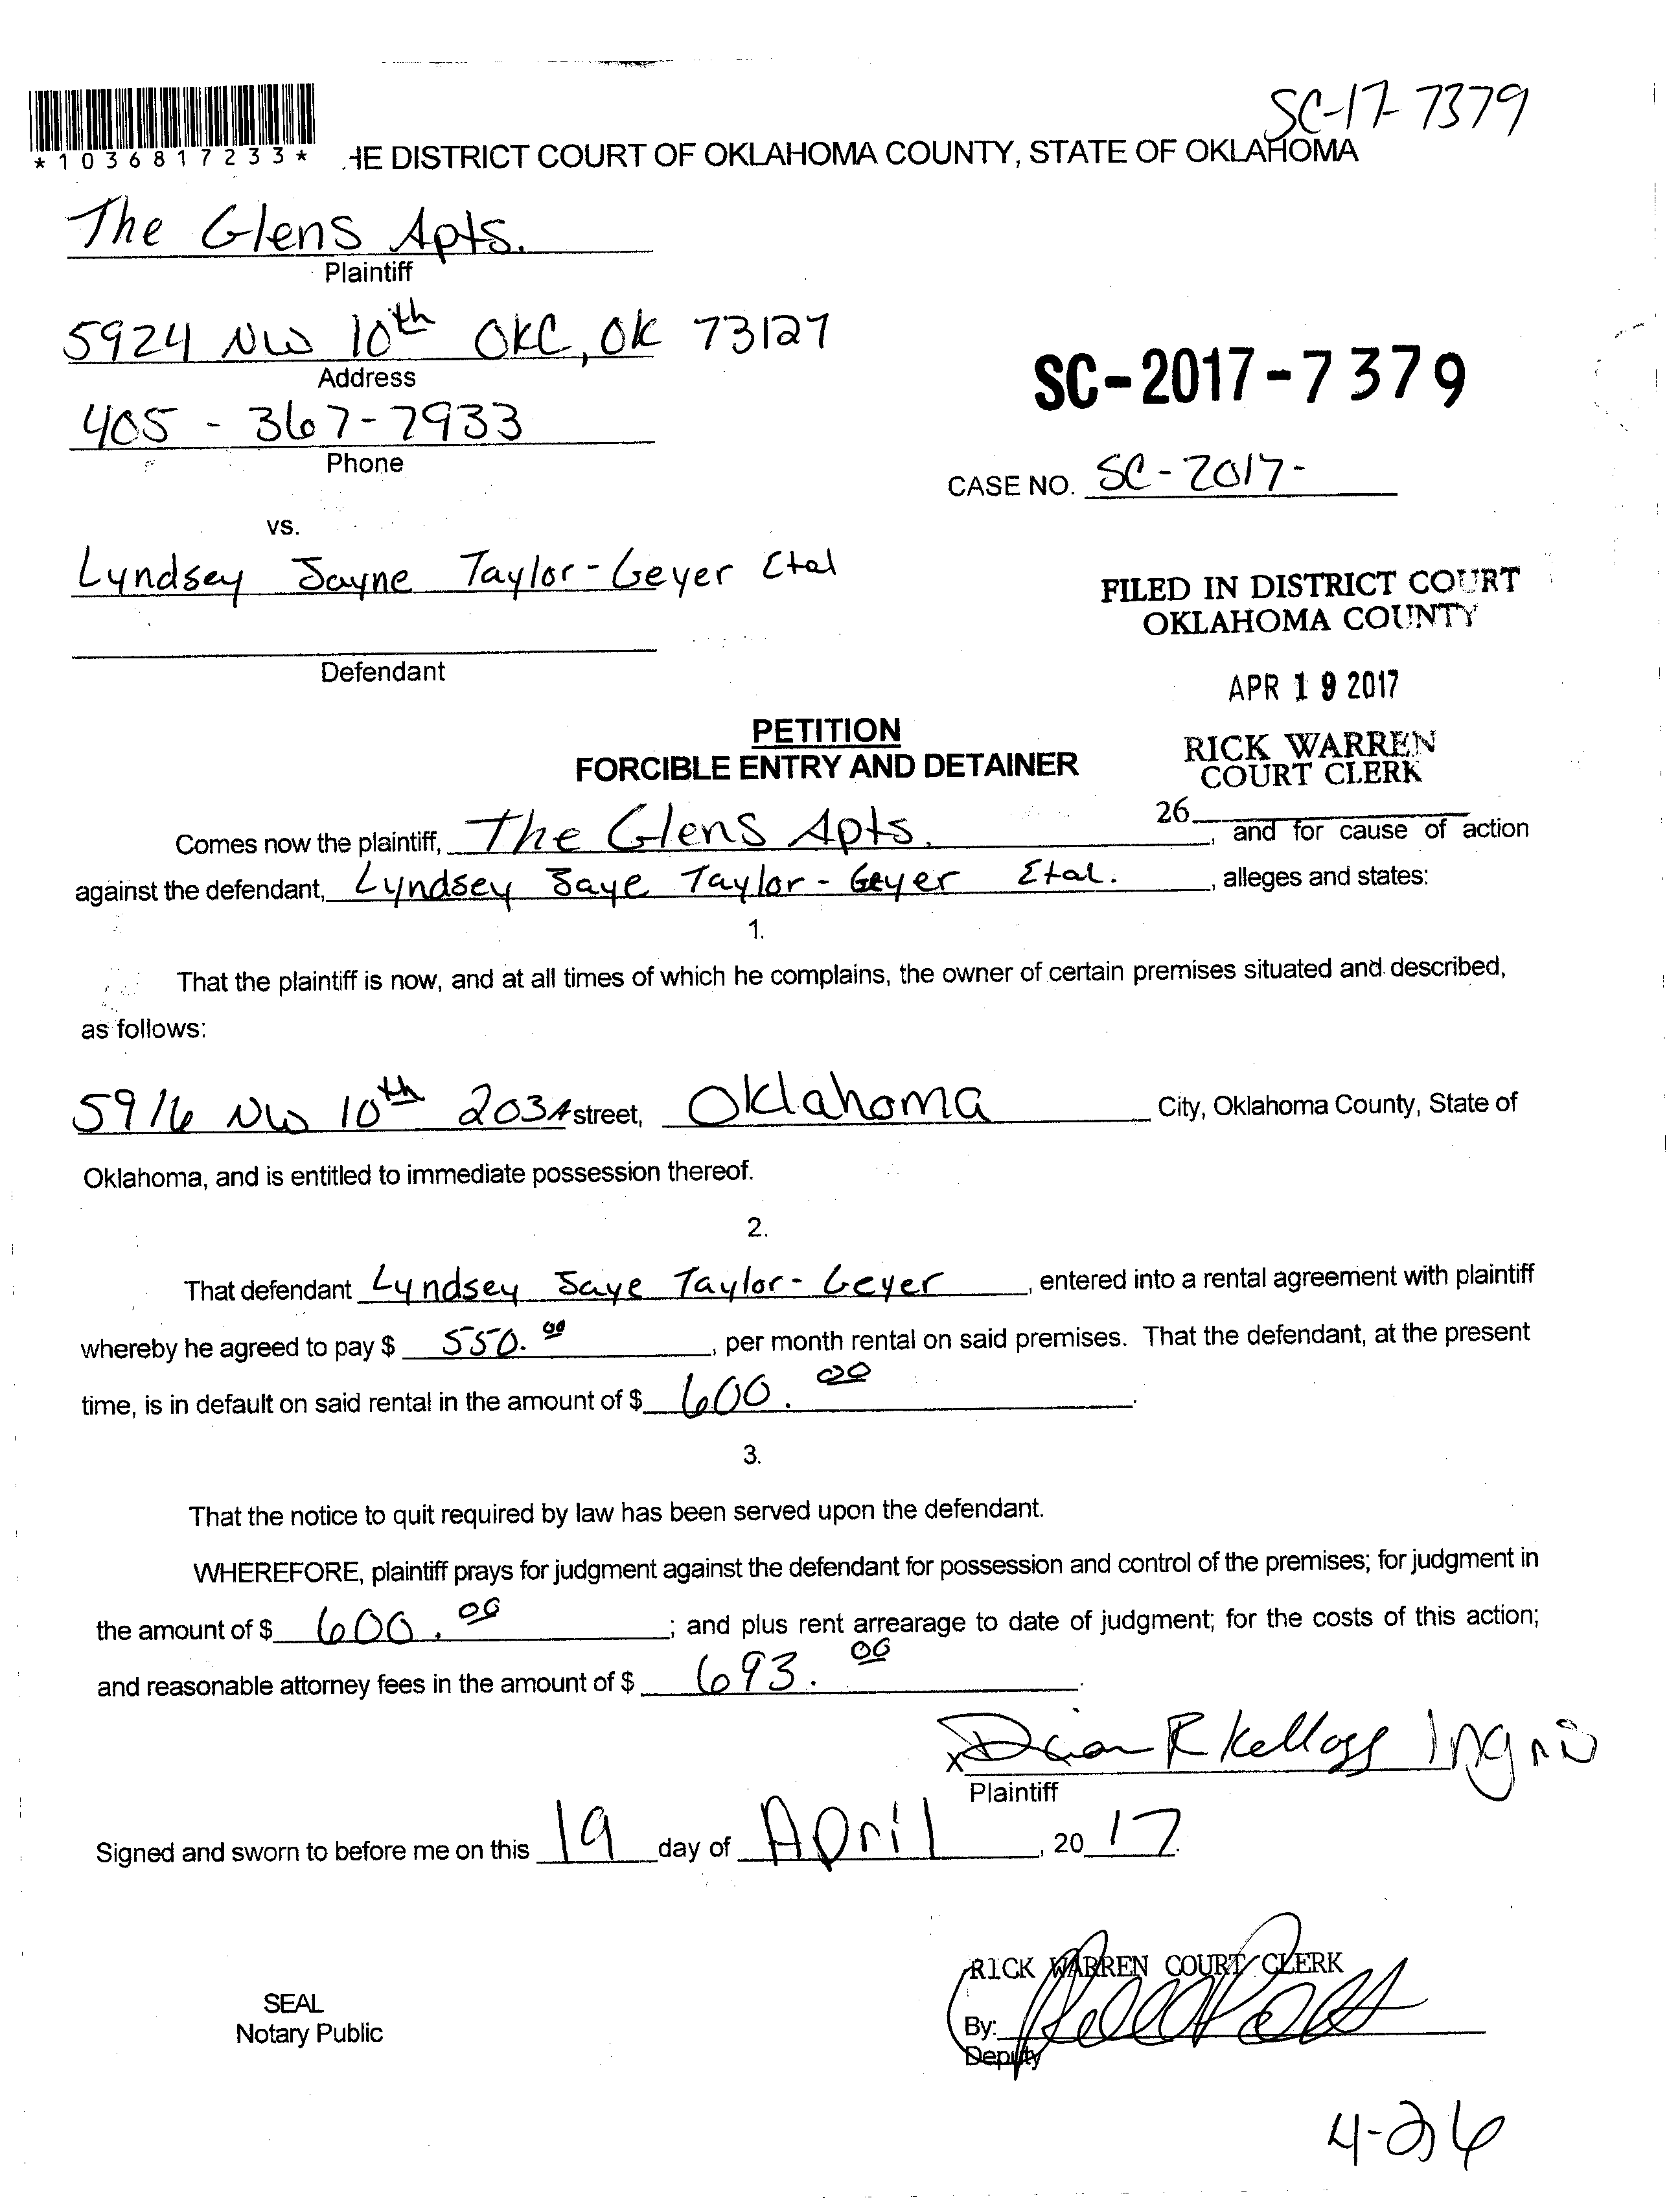 SC-17-7379
*1036817233* HE DISTRICT COURT OF OKLAHOMA COUNTY, STATE OF OKLAHOMA
The Glens Apts.
Plaintiff
5924 NW 10th OKC, OK 73127
Address
405 - 367-7933
Phone
SC-2017-7379
CASE NO. SC-2017-
vs.
Lyndsey Jayne Taylor-Geyer Etal
Defendant
FILED IN DISTRICT COURT
OKLAHOMA COUNTY
APR 19 2017
RICK WARREN
COURT CLERK
26
PETITION
FORCIBLE ENTRY AND DETAINER
Comes now the plaintiff, The Glens Apts. , and for cause of action
against the defendant, Lyndsey Jaye Taylor-Geyer Etal. , alleges and states:
1.
That the plaintiff is now, and at all times of which he complains, the owner of certain premises situated and described,
as follows:
5916 NW 10th 203A street, Oklahoma City, Oklahoma County, State of
Oklahoma, and is entitled to immediate possession thereof.
2.
That defendant Lyndsey Jaye Taylor-Geyer , entered into a rental agreement with plaintiff
whereby he agreed to pay $ 550.00 , per month rental on said premises. That the defendant, at the present
time, is in default on said rental in the amount of $ 600.00 .
3.
That the notice to quit required by law has been served upon the defendant.
WHEREFORE, plaintiff prays for judgment against the defendant for possession and control of the premises; for judgment in
the amount of $ 600.00 ; and plus rent arrearage to date of judgment; for the costs of this action;
and reasonable attorney fees in the amount of $ 693.00 .
x R Kellogg
Plaintiff
Signed and sworn to before me on this 19 day of April , 20 17.
RICK WARREN COURT CLERK
SEAL
Notary Public
By:
Deputy
4-26